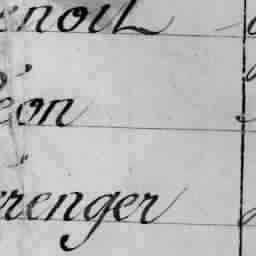 enoit
éon
renger